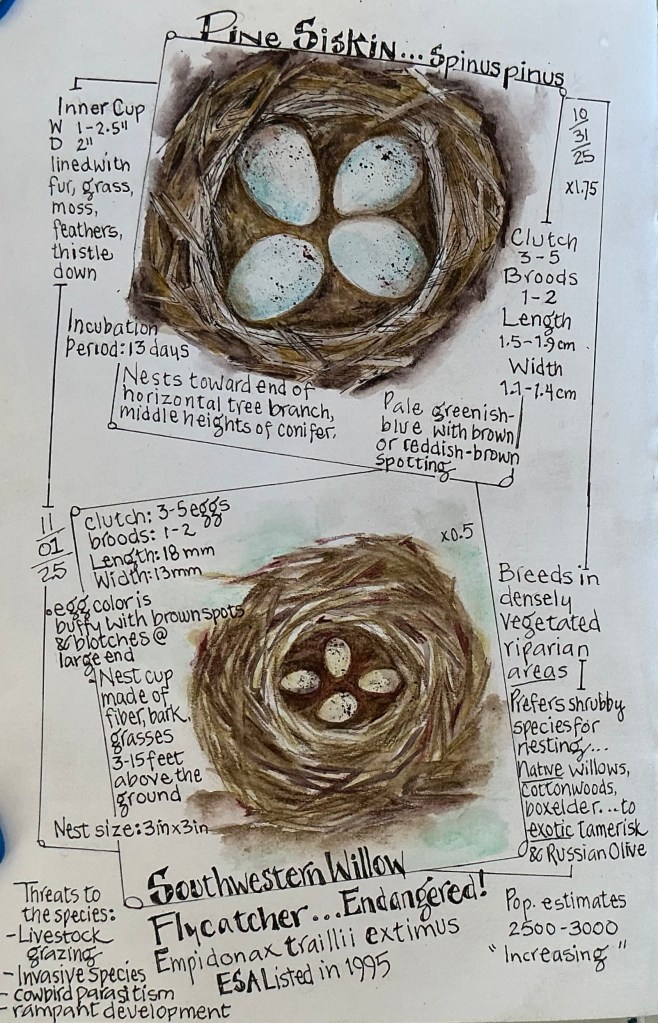 Pine Siskin... Spinus pinus
Inner Cup
W 1-2.5"
D 2"
lined with
fur, grass,
moss,
feathers,
thistle
down
10
31
25
x1.75
Clutch
3-5
Broods
1-2
Length
1.5-1.9cm
Width
1.1-1.4cm
Incubation
Period: 13 days
Nests toward end of
horizontal tree branch,
middle heights of conifer.
Pale greenish-
blue with brown
or reddish-brown
spotting
11
01
25
clutch: 3-5 eggs
broods: 1-2
Length: 18 mm
Width: 13mm
x0.5
egg color is
buffy with brown spots
& blotches @
large end
Nest cup
made of
fiber, bark,
grasses
3-15 feet
above the
ground
Nest size: 3in x 3in
Breeds in
densely
vegetated
riparian
areas
Prefers shrubby
species for
nesting...
native willows,
cottonwoods,
boxelder...to
exotic tamerisk
& Russian Olive
Southwestern Willow
Flycatcher...Endangered!
Empidonax traillii extimus
ESA Listed in 1995
Threats to
the species:
-Livestock
grazing
-Invasive Species
-cowbird parasitism
-rampant development
Pop. estimates
2500-3000
"Increasing"